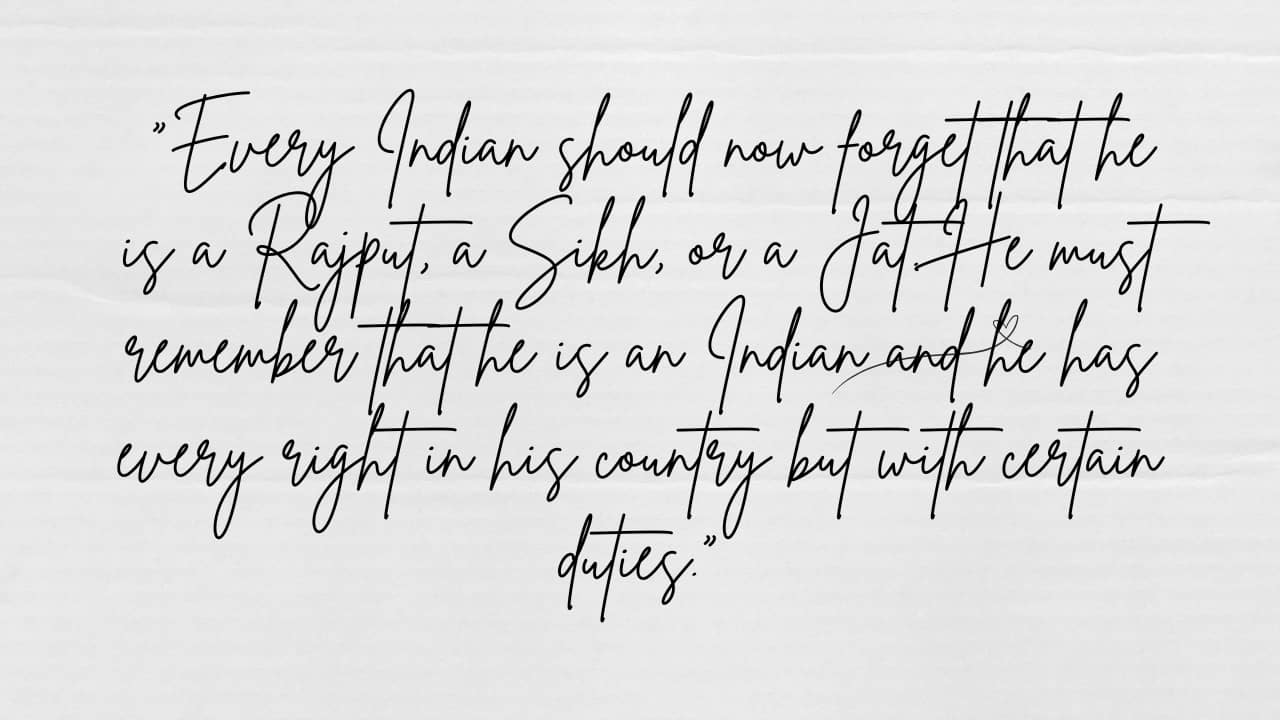 "Every Indian should now forget that he
is a Rajput, a Sikh, or a Jat.He must
remember that he is an Indian and he has
every right in his country but with certain
duties."